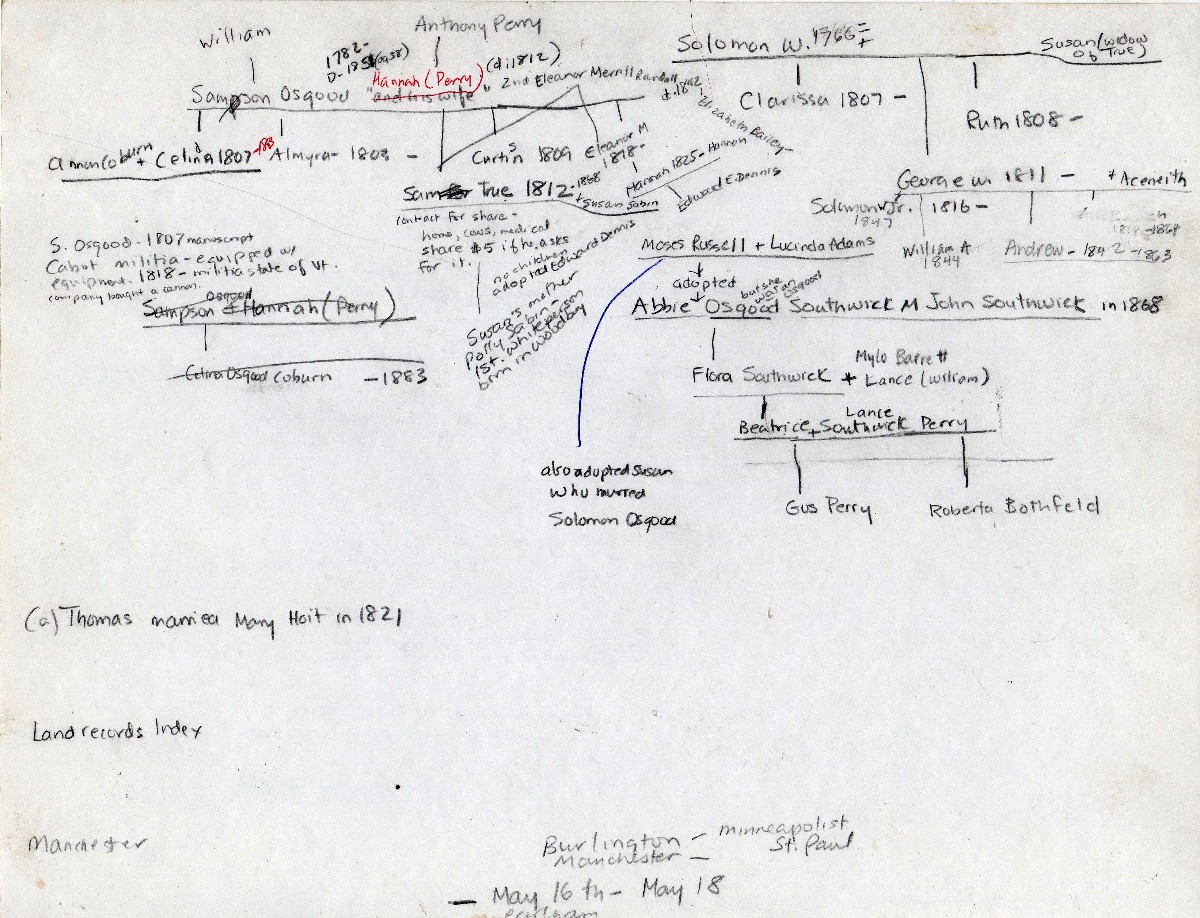 William
Anthony Perry
1782-
D-1851 (age 58)
Hannah (Perry) (d. 1812)
Sampson Osgood "and his wife" 2nd Eleanor Merrill Randall
d. 1842
Elizabeth Bailey
Solomon W. 1766 =
Susan (widow
of True)
Clarissa 1807 -
Ruth 1808 -
+ Celina 1807 -1883
Almyra - 1803 -
Curtis 1809
Eleanor M
1818 -
Sam True 1812 - 1868
+ Susan Sabin
Hannah 1825 - Hannah
Edward E. Dennis
contract for share -
home, cows, medical
share $5 if he asks
for it.
no children
adopted Edward Dennis
Susan's mother
Polly Sabin -
1st. white person
born in Woodbury
George W. 1811 - + Aceneith
Solomon W. Jr. 1816 -
1847
William A
1844
Andrew - 1842 - 1863
S. Osgood - 1807 manuscript
Cabot militia - equipped w/
equipment. 1818 - militia state of Vt.
company bought a cannon.
Osgood
Sampson & Hannah (Perry)
Celina Osgood Coburn - 1883
Moses Russell + Lucinda Adams
adopted
but she
was an
Osgood
Abbie Osgood Southwick M John Southwick in 1868
Flora Southwick +
Mylo Barrett
Lance (William)
Lance
Beatrice + Southwick Perry
Gus Perry
Roberta Bothfeld
also adopted Susan
who married
Solomon Osgood
(a) Thomas married Mary Hoit in 1821
Land records Index
Manchester
Burlington - Minneapolist
Manchester - St. Paul
- May 16 th - May 18